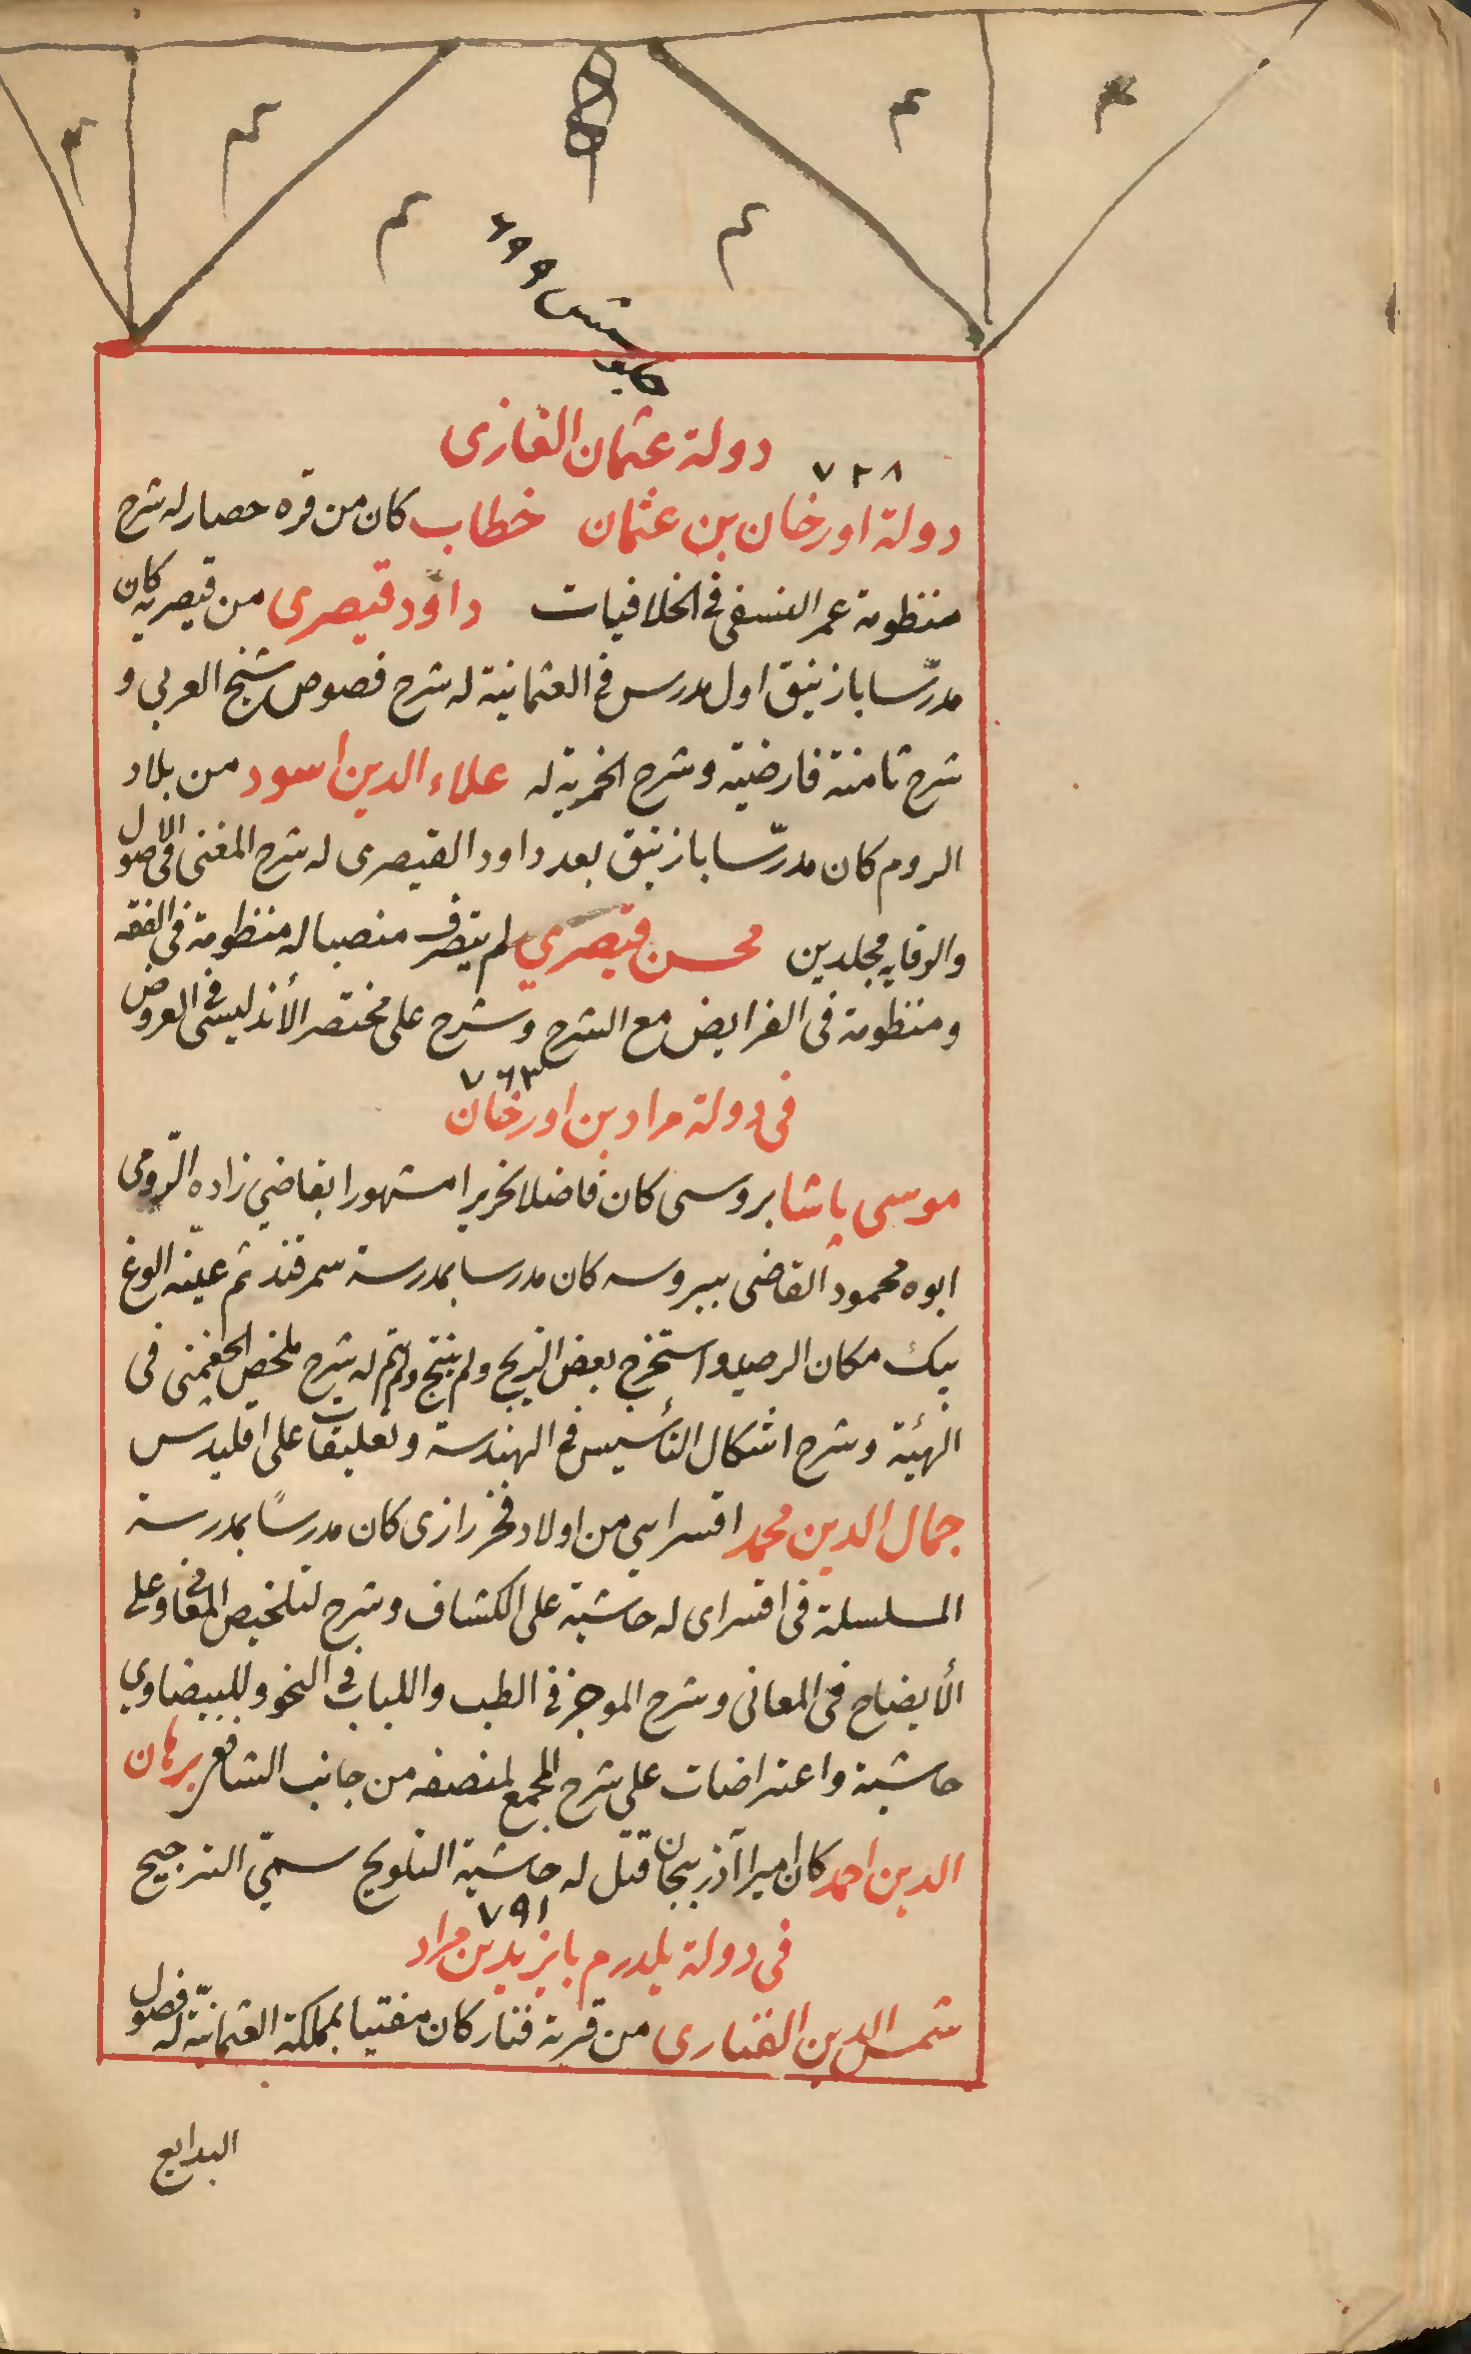 ٦٩٩
جلوس
دولة عثمان الغازى
٧٢٨
دولة اورخان بن عثمان خطاب كان من قره حصار له شرح
منظومة عمر النسفى فى الخلافيات داود قيصرى من قيصريه كان
مدرّسا بازنيق اول مدرس فى العثمانية له شرح فصوص شيخ العربى و
شرح ثامنة فارضيته وشرح الخمرية له علاء الدين اسود من بلاد
الروم كان مدرّسا بازنيق بعد داود القيصرى له شرح المغنى فى الاصول
والوقايه مجلدين محسن قيصري لم يتصرف منصبا له منظومة فى الفقه
ومنظومة فى الفرايض مع الشرح وشرح على مختصر الأندليسى فى العروض
٧٦٣
فى دولة مراد بن اورخان
موسى پاشا بروسى كان فاضلا نحريرا مشهورا بقاضى زاده الرّومى
ابوه محمود القاضى ببروسه كان مدرسا بمدرسة سمرقند ثم عينه الوغ
بيك مكان الرصد واستخرج بعض الزيج ولم ينتج ولم يتم له شرح ملخص الجغمينى فى
الهيئة وشرح اشكال التأسيس فى الهندسة وتعليقات على اقليدس
جمال الدين محمد اقسرايى من اولاد فخر رازى كان مدرسًا بمدرسة
المسلسلة فى اقسراى له حاشية على الكشاف وشرح لتلخيص المعانى وعلى
الأيضاح فى المعانى وشرح الموجز فى الطب واللباب فى النحو وللبيضاوي
حاشية واعتراضات على شرح المجمع لمنصفه من جانب الشافعى برهان
الدين احمد كان اميرا آذربيجان قتل له حاشية التلويح سمّي الترجيح
٧٩١
فى دولة يلدرم بايزيد بن مراد
شمس الدين الفنارى من قرية فنار كان مفتيا بمملكة العثمانيّة له فصول
البدايع